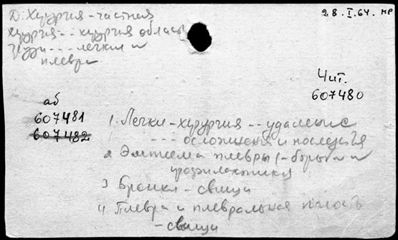 Д: Хирургия - частная
28. I. 64. МР
Хирургия - - хирургия области
груди - - - легкие и
плевра
Чит.
607480
аб
607481
607482
1. Легкие - хирургия - - удаление
- - - осложнения и последствия
2 Эмпиема плевры (- борьба и
профилактика)
3 Бронхи - свищи
4 Плевра и плевральная полость
- свищи